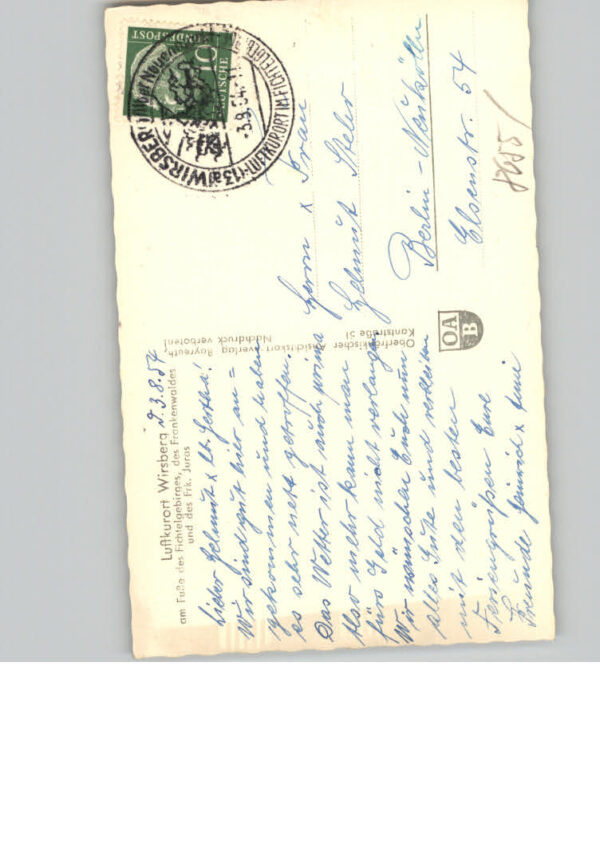 Luftkurort Wirsberg
am Fuße des Fichtelgebirges, des Frankenwaldes
und des Frk. Juras
d. 3.8.54
Lieber Helmut x lb. Gertha!
Wir sind gut hier an=
gekommen und haben
es sehr nett getroffen.
Das Wetter ist auch prima
also mehr kann man
fürs Geld nicht verlangen.
Wir wünschen Euch nun
alles Gute und verbleiben
mit den besten
Feriengrüßen Eure
Freunde Heinrich x
Oberfränkischer Ansichtskartenverlag Bayreuth,
Kantstraße 31 Nachdruck verboten!
OA
B
DEUTSCHE
BUNDESPOST
10
(13a) WIRSBERG
LUFTKURORT IM FICHTELGEB.
-3.8.54
Herrn x Frau
Helmut Steler
Berlin-Neukölln
Elsenstr. 54